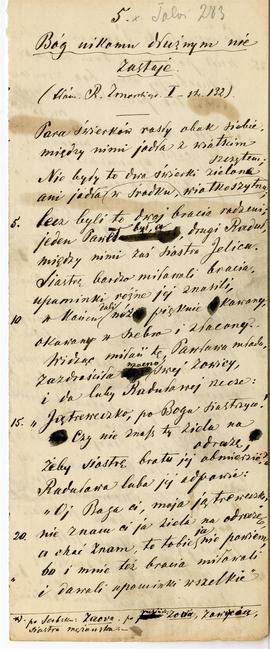 5. x Talvi 203
Bóg nikomu dłużnym nie
zostaje.
(tłóm. R. Zmorskiego II – str. 122)
Para świerków rosły obok siebie,
między nimi jodła z wiotkim
szczytem;
Nie były to dwa świerki zielone
ani jodła w środku, wiotkoszczytna
5. lecz byli to dwaj bracia rodzeni,
jeden Paweł był a drugi Radul,
między nimi zaś siostra Jelica.
Siostrę bardzo miłowali bracia,
upominki różne jej znosili,
10. w końcu nóż pięknie okowany,
okowany w srebro i złocony.
Widząc miłość tę, Pawłowa młoda,
zazdrościła mocno swej zowicy,
i do luby Radulowej rzecze:
15. „Jętreweczko, po Bogu siostrzyco!
Czy nie znasz ty ziela na
odrazę,
żeby siostrę bratu jej obmierzić?"
Radulowa luba jej odpowie:
„Oj Boga ci, moja jętreweczko,
nie znam ci ja ziela na odrazę,
20. a choć znam, to tobie nie powiem
bo i mnie też bracia miłowali
i dawali upominki wszelkie"
*) po serbsku: Zaova. po Zowia, Zowica,
siostra mężowska.